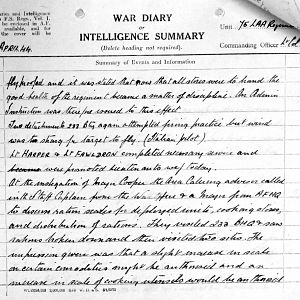 and Intelligence
in F.S. Regs., Vol. I.
to be enclosed in A.F.
available, and for
the cover will be
APRIL 44
WAR DIARY
OR
INTELLIGENCE SUMMARY
(Delete heading not required).
Unit 75 LAA Regiment
Commanding Officer
Summary of Events and Information
fly proofed and it was stated that now that all stores were to hand the
good health of the regiment became a matter of discipline. An Admin
Instruction was issued to this effect.
Two detachments 233 Bty again attempted firing practice but wind
was too strong for target to fly.
Lt HARPER & Lt completed necessary service and
were promoted Lieutenants today.
At the instigation of Major Cooper the Area Catering adviser called
with Staff Captain from the War Office & a Major from AFHQ
to discuss ration scales for deployed units, cooking stoves,
and distribution of rations. They visited 233 BHQ & saw
rations broken down and then visited two sites. The
impression given was that a slight increase in scale
on certain commodities might be authorised and an
increase in scale of cooking utensils would be authorised